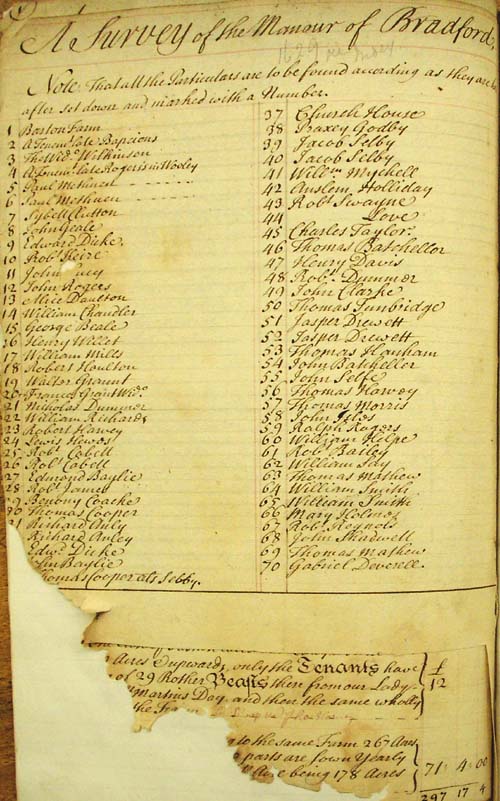 A Survey of the Manour of Bradford.
1629
Note That all the Particulars are to be found according as they are
after set down and marked with a Number.
1 Barton Farm
2 A Tenemt. late Bapcions
3 The Wido. Wilkinson
4 A Tenemt. late Rogers in Wooley
5 Paul Methuen
6 Paul Methuen
7 Sybell Clutton
8 John Geale
9 Edward Dicke
10 Robt. Heire
11 John
12 John Rogers
13 Alice Daulton
14 William Chandler
15 George Beale
16 Henry Willet
17 William Mills
18 Robert Houlton
19 Walter Graunt
20 Frances Grant Wido.
21 Nicholas Dummer
22 William Richards
23 Robert Harvey
24 Lewis Hewes
25 Robt. Cabell
26 Robt. Cabell
27 Edmond Baylie
28 Robt. James
29 Benony Coache
30 Thomas Cooper
31 Richard Anly
Richard Anley
Edwd. Dicke
Baylie
Thomas Cooper als Sebby.
37 Church House
38 Godby
39 Jacob Selby
40 Jacob Selby
41 Willm. Mychell
42 Anslem Holliday
43 Robt. Swayne
44 Love
45 Charles Taylor.
46 Thomas Batchellor
47 Henry Davis
48 Robt. Dummer
49 John Clarke
50 Thomas Tunbridge
51 Jasper Drewett
52 Jasper Drewett
53 Thomas Hanham
54 John Batcheller
55 John Selfe
56 Thomas Harvey
57 Thomas Morris
58 John
59 Ralph Rogers
60 William
61 Robt. Bailey
62 William Say
63 Thomas Mathew
64 William Smith
65 William Smith
66 Mary
67 Robt. Reynols
68 John Shadwell
69 Thomas Mathew
70 Gabriel Deverell.
Acres & upwards, only the Tenants have
of 29 Rother Beasts then from our Lady-
Martins Day, and then the same wholly
the Farm
£
12
to the same Farm 267 Acres
parts are sown Yearly
Acre being 178 Acres
71 4 00
297 17 4